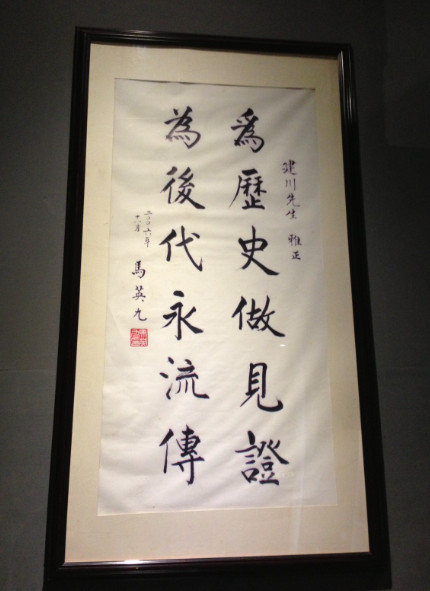 建川先生 雅正
爲歷史做見證
為後代永流傳
二〇〇六年
十一月
馬英九